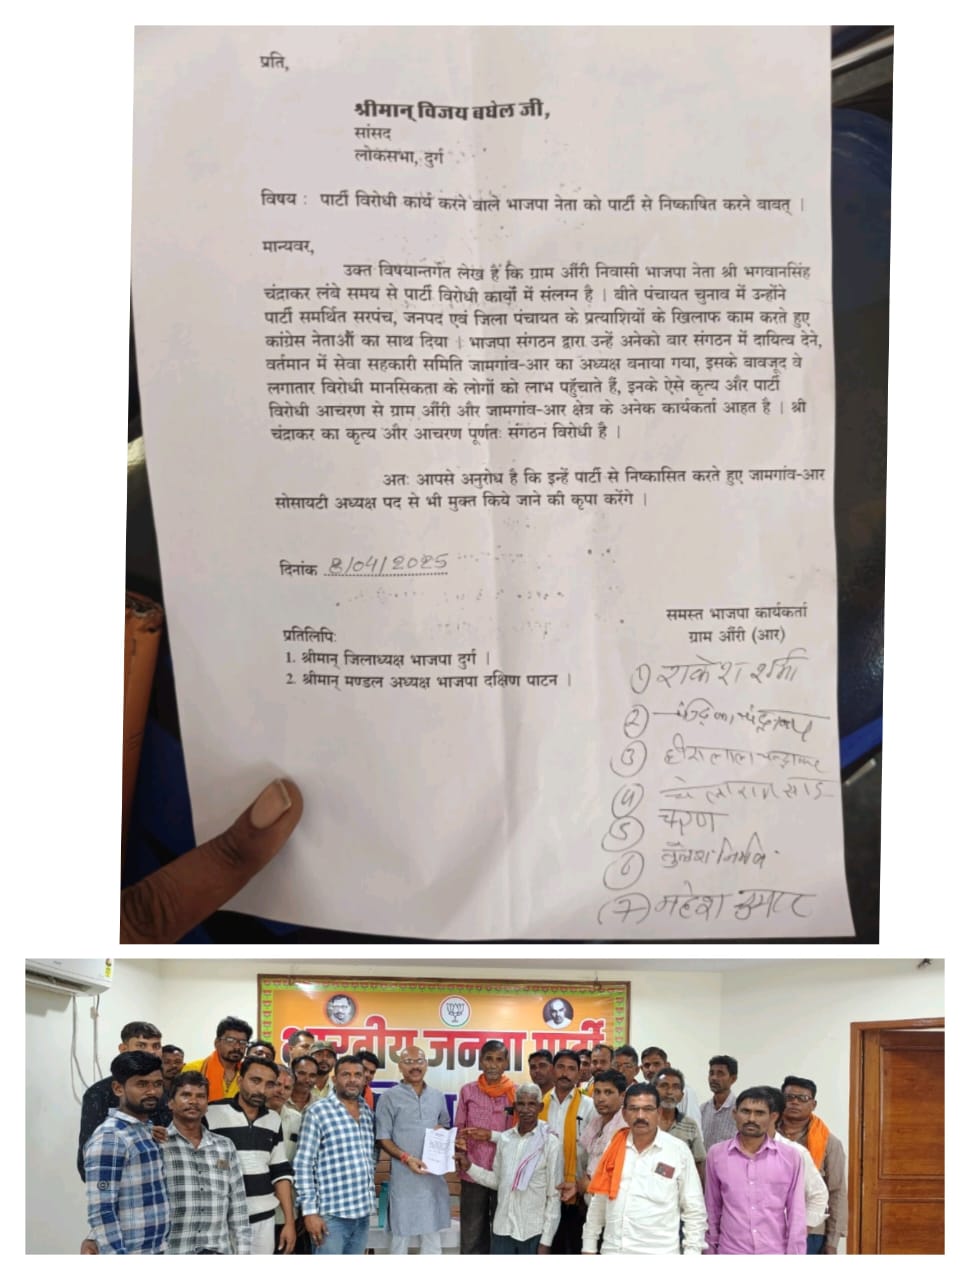 प्रति,
श्रीमान् विजय बघेल जी,
सांसद
लोकसभा, दुर्ग
विषय : पार्टी विरोधी कार्य करने वाले भाजपा नेता को पार्टी से निष्काषित करने बाबत् ।
मान्यवर,
उक्त विषयान्तर्गत लेख है कि ग्राम औंरी निवासी भाजपा नेता श्री भगवानसिंह
चंद्राकर लंबे समय से पार्टी विरोधी कार्यो में संलग्न है । बीते पंचायत चुनाव में उन्होंने
पार्टी समर्थित सरपंच, जनपद एवं जिला पंचायत के प्रत्याशियों के खिलाफ काम करते हुए
कांग्रेस नेताओं का साथ दिया । भाजपा संगठन द्वारा उन्हें अनेको बार संगठन में दायित्व देने,
वर्तमान में सेवा सहकारी समिति जामगांव-आर का अध्यक्ष बनाया गया, इसके बावजूद वे
लगातार विरोधी मानसिकता के लोगों को लाभ पहुँचाते हैं, इनके ऐसे कृत्य और पार्टी
विरोधी आचरण से ग्राम औंरी और जामगांव-आर क्षेत्र के अनेक कार्यकर्ता आहत है । श्री
चंद्राकर का कृत्य और आचरण पूर्णतः संगठन विरोधी है ।
अतः आपसे अनुरोध है कि इन्हें पार्टी से निष्कासित करते हुए जामगांव-आर
सोसायटी अध्यक्ष पद से भी मुक्त किये जाने की कृपा करेंगे ।
दिनांक 8/04/2025
समस्त भाजपा कार्यकर्ता
ग्राम औंरी (आर)
प्रतिलिपिः
1. श्रीमान् जिलाध्यक्ष भाजपा दुर्ग ।
2. श्रीमान् मण्डल अध्यक्ष भाजपा दक्षिण पाटन ।
1) राकेश शर्मा
2)
3) हीरालाल चन्द्राकर
4)
5) चरण
6)
(7) महेश कुमार
भारतीय जनता पार्टी